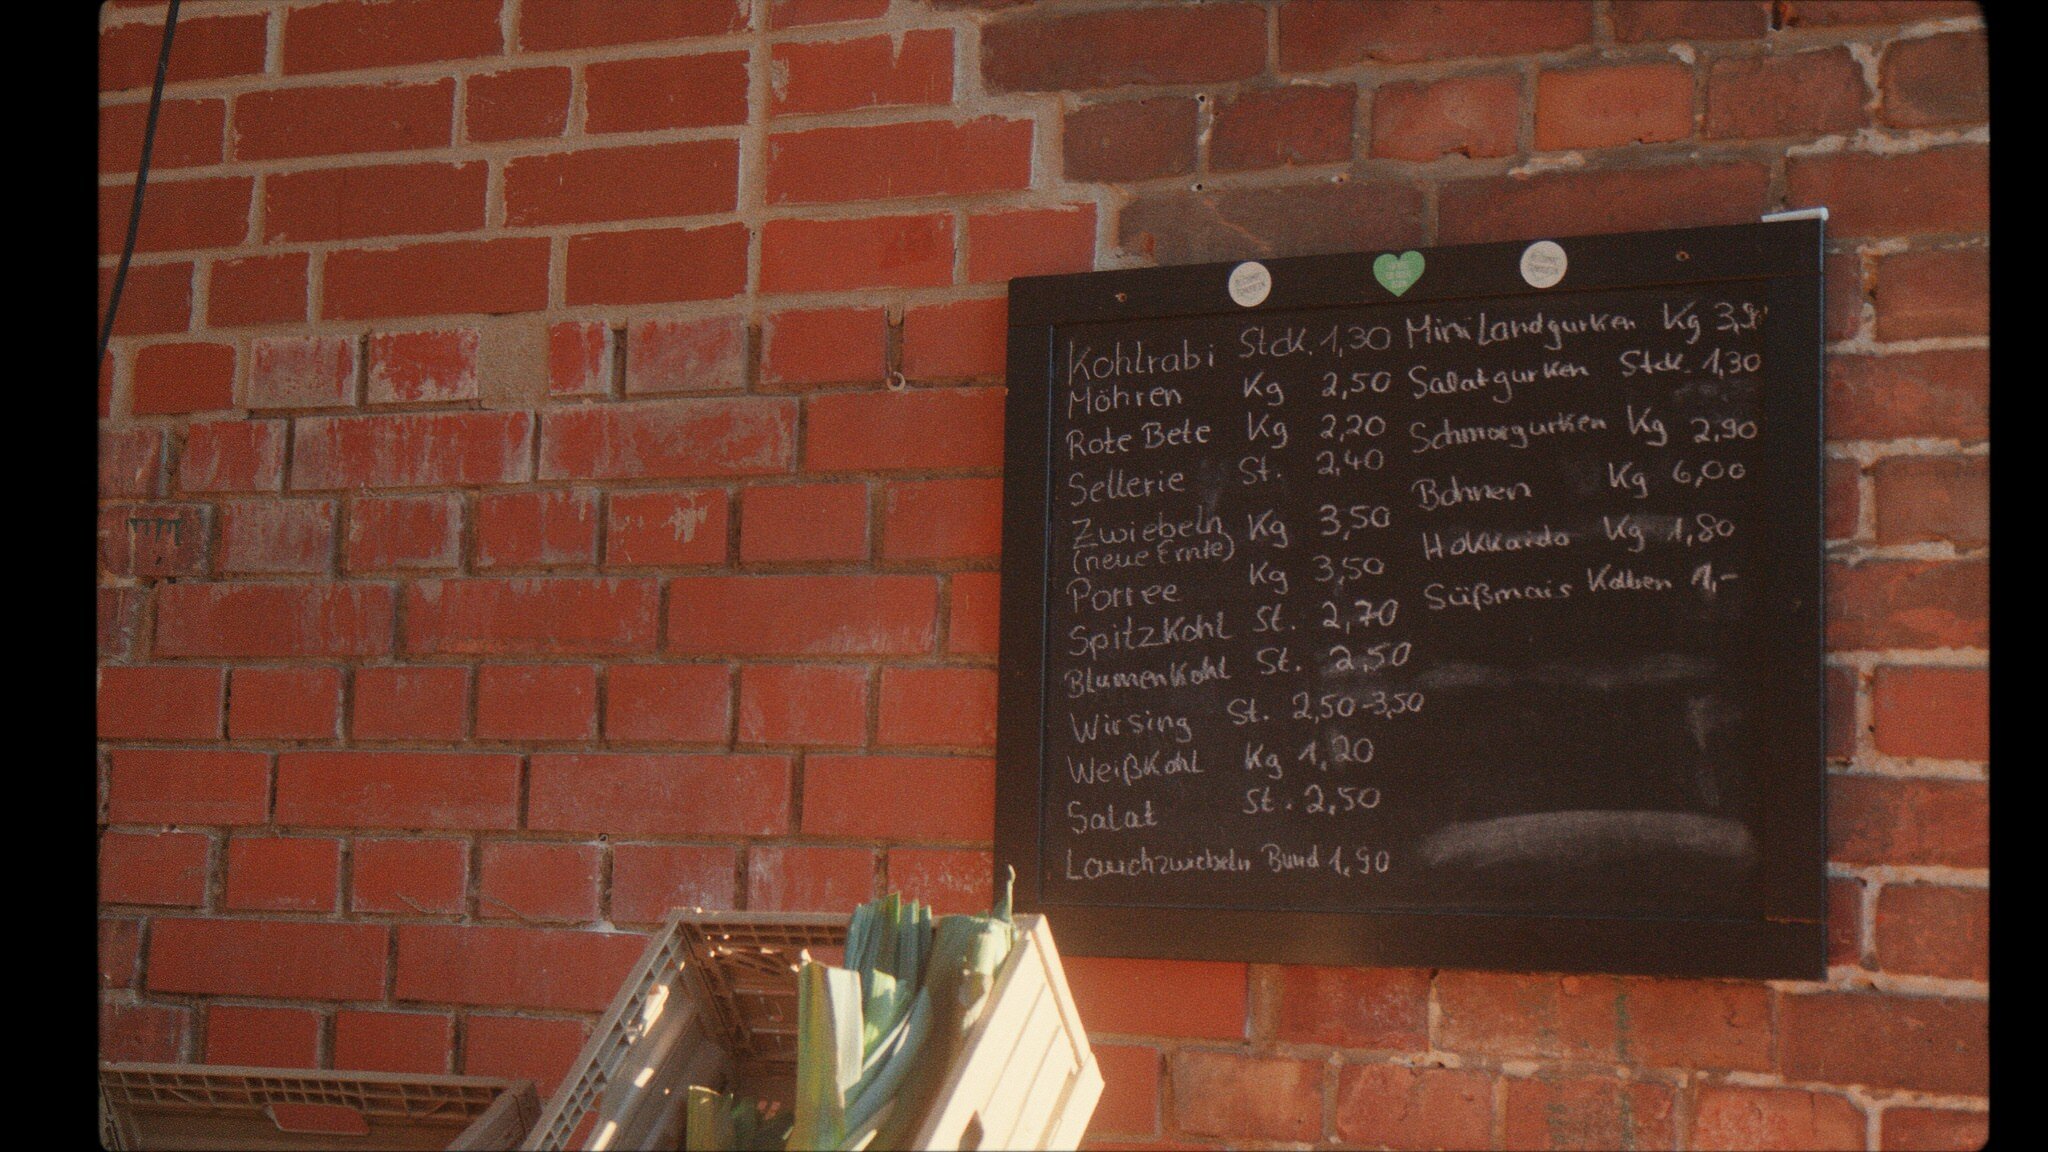 Kohlrabi Stck. 1,30
Möhren Kg 2,50
Rote Bete Kg 2,20
Sellerie St. 2,40
Zwiebeln Kg 3,50
(neue Ernte)
Porree Kg 3,50
Spitzkohl St. 2,70
Blumenkohl St. 2,50
Wirsing St. 2,50-3,50
Weißkohl Kg 1,20
Salat St. 2,50
Lauchzwiebeln Bund 1,90
Mini Landgurken Kg
Salatgurken Stck. 1,30
Schmorgurken Kg 2,90
Bohnen Kg 6,00
Hokkaido Kg 1,80
Süßmais Kolben 1,-